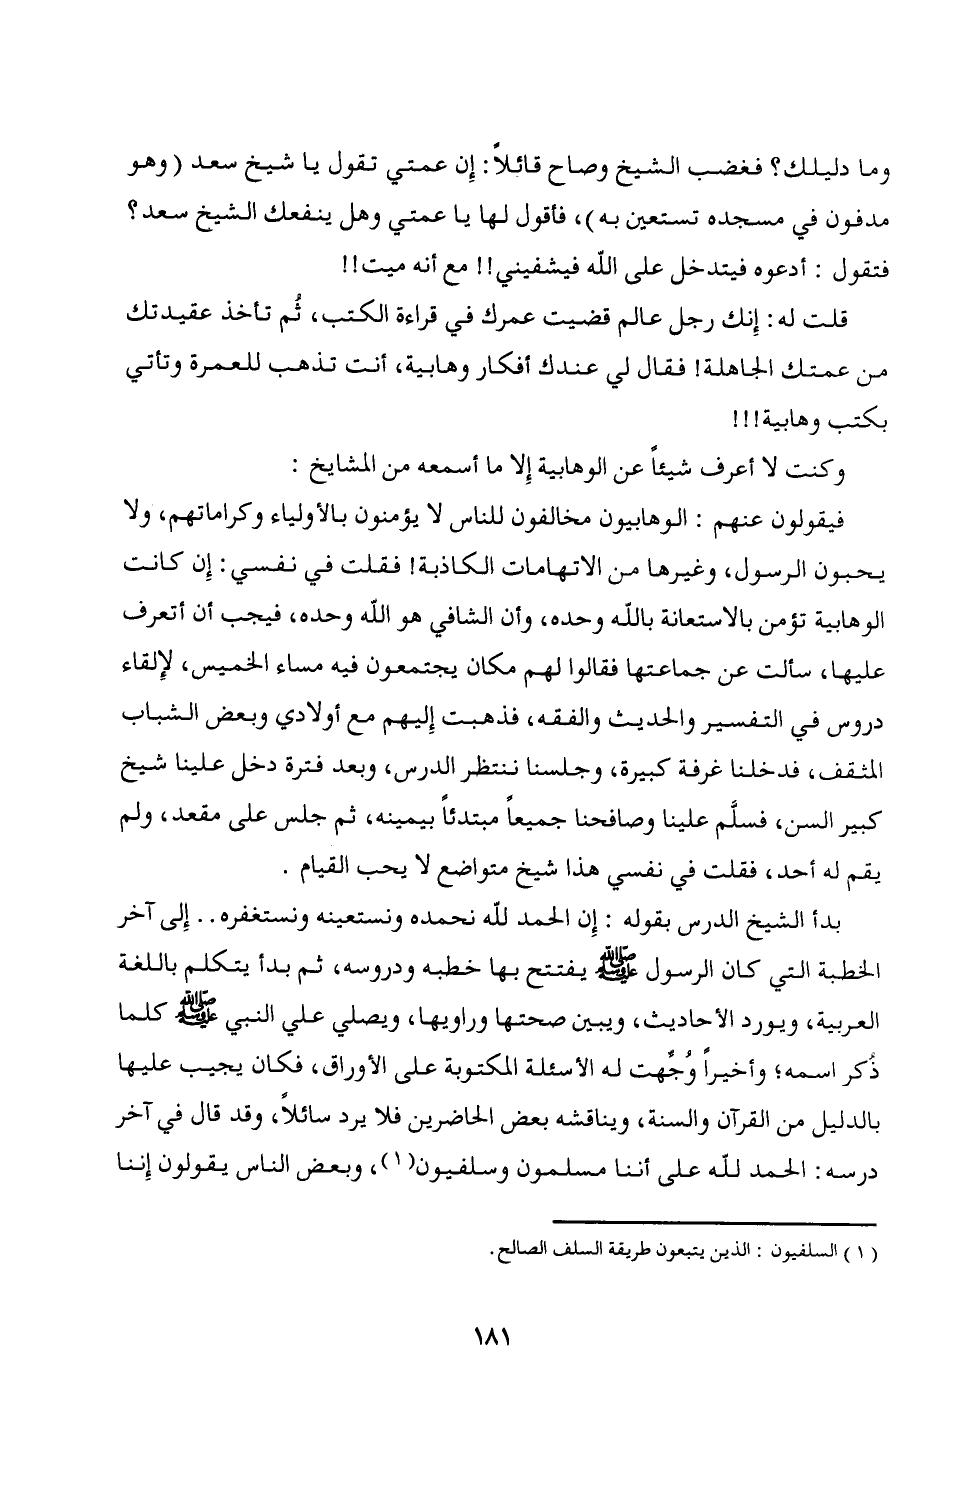 وما دليلك؟ فغضب الشيخ وصاح قائلاً: إن عمتي تقول يا شيخ سعد (وهو
مدفون في مسجده تستعين به)، فأقول لها يا عمتي وهل ينفعك الشيخ سعد؟
فتقول : أدعوه فيتدخل على الله فيشفيني!! مع أنه ميت!!
قلت له: إنك رجل عالم قضيت عمرك في قراءة الكتب، ثُم تأخذ عقيدتك
من عمتك الجاهلة! فقال لي عندك أفكار وهابية، أنت تذهب للعمرة وتأتي
بكتب وهابية!!!
وكنت لا أعرف شيئاً عن الوهابية إلا ما أسمعه من المشايخ :
فيقولون عنهم : الوهابيون مخالفون للناس لا يؤمنون بالأولياء وكراماتهم، ولا
يحبون الرسول، وغيرها من الاتهامات الكاذبة! فقلت في نفسي: إن كانت
الوهابية تؤمن بالاستعانة بالله وحده، وأن الشافي هو الله وحده، فيجب أن أتعرف
عليها، سألت عن جماعتها فقالوا لهم مكان يجتمعون فيه مساء الخميس، لإلقاء
دروس في التفسير والحديث والفقه، فذهبت إليهم مع أولادي وبعض الشباب
المثقف، فدخلنا غرفة كبيرة، وجلسنا ننتظر الدرس، وبعد فترة دخل علينا شيخ
كبير السن، فسلَّم علينا وصافحنا جميعاً مبتدئاً بيمينه، ثم جلس على مقعد، ولم
يقم له أحد، فقلت في نفسي هذا شيخ متواضع لا يحب القيام .
بدأ الشيخ الدرس بقوله : إن الحمد لله نحمده ونستعينه ونستغفره.. إلى آخر
الخطبة التي كان الرسول ﷺ يفتتح بها خطبه ودروسه، ثم بدأ يتكلم باللغة
العربية، ويورد الأحاديث، ويبين صحتها وراويها، ويصلي علي النبي ﷺ كلما
ذُكر اسمه؛ وأخيراً وُجِّهت له الأسئلة المكتوبة على الأوراق، فكان يجيب عليها
بالدليل من القرآن والسنة، ويناقشه بعض الحاضرين فلا يرد سائلاً، وقد قال في آخر
درسه: الحمد لله على أننا مسلمون وسلفيون(١)، وبعض الناس يقولون إننا
(١) السلفيون : الذين يتبعون طريقة السلف الصالح.
١٨١